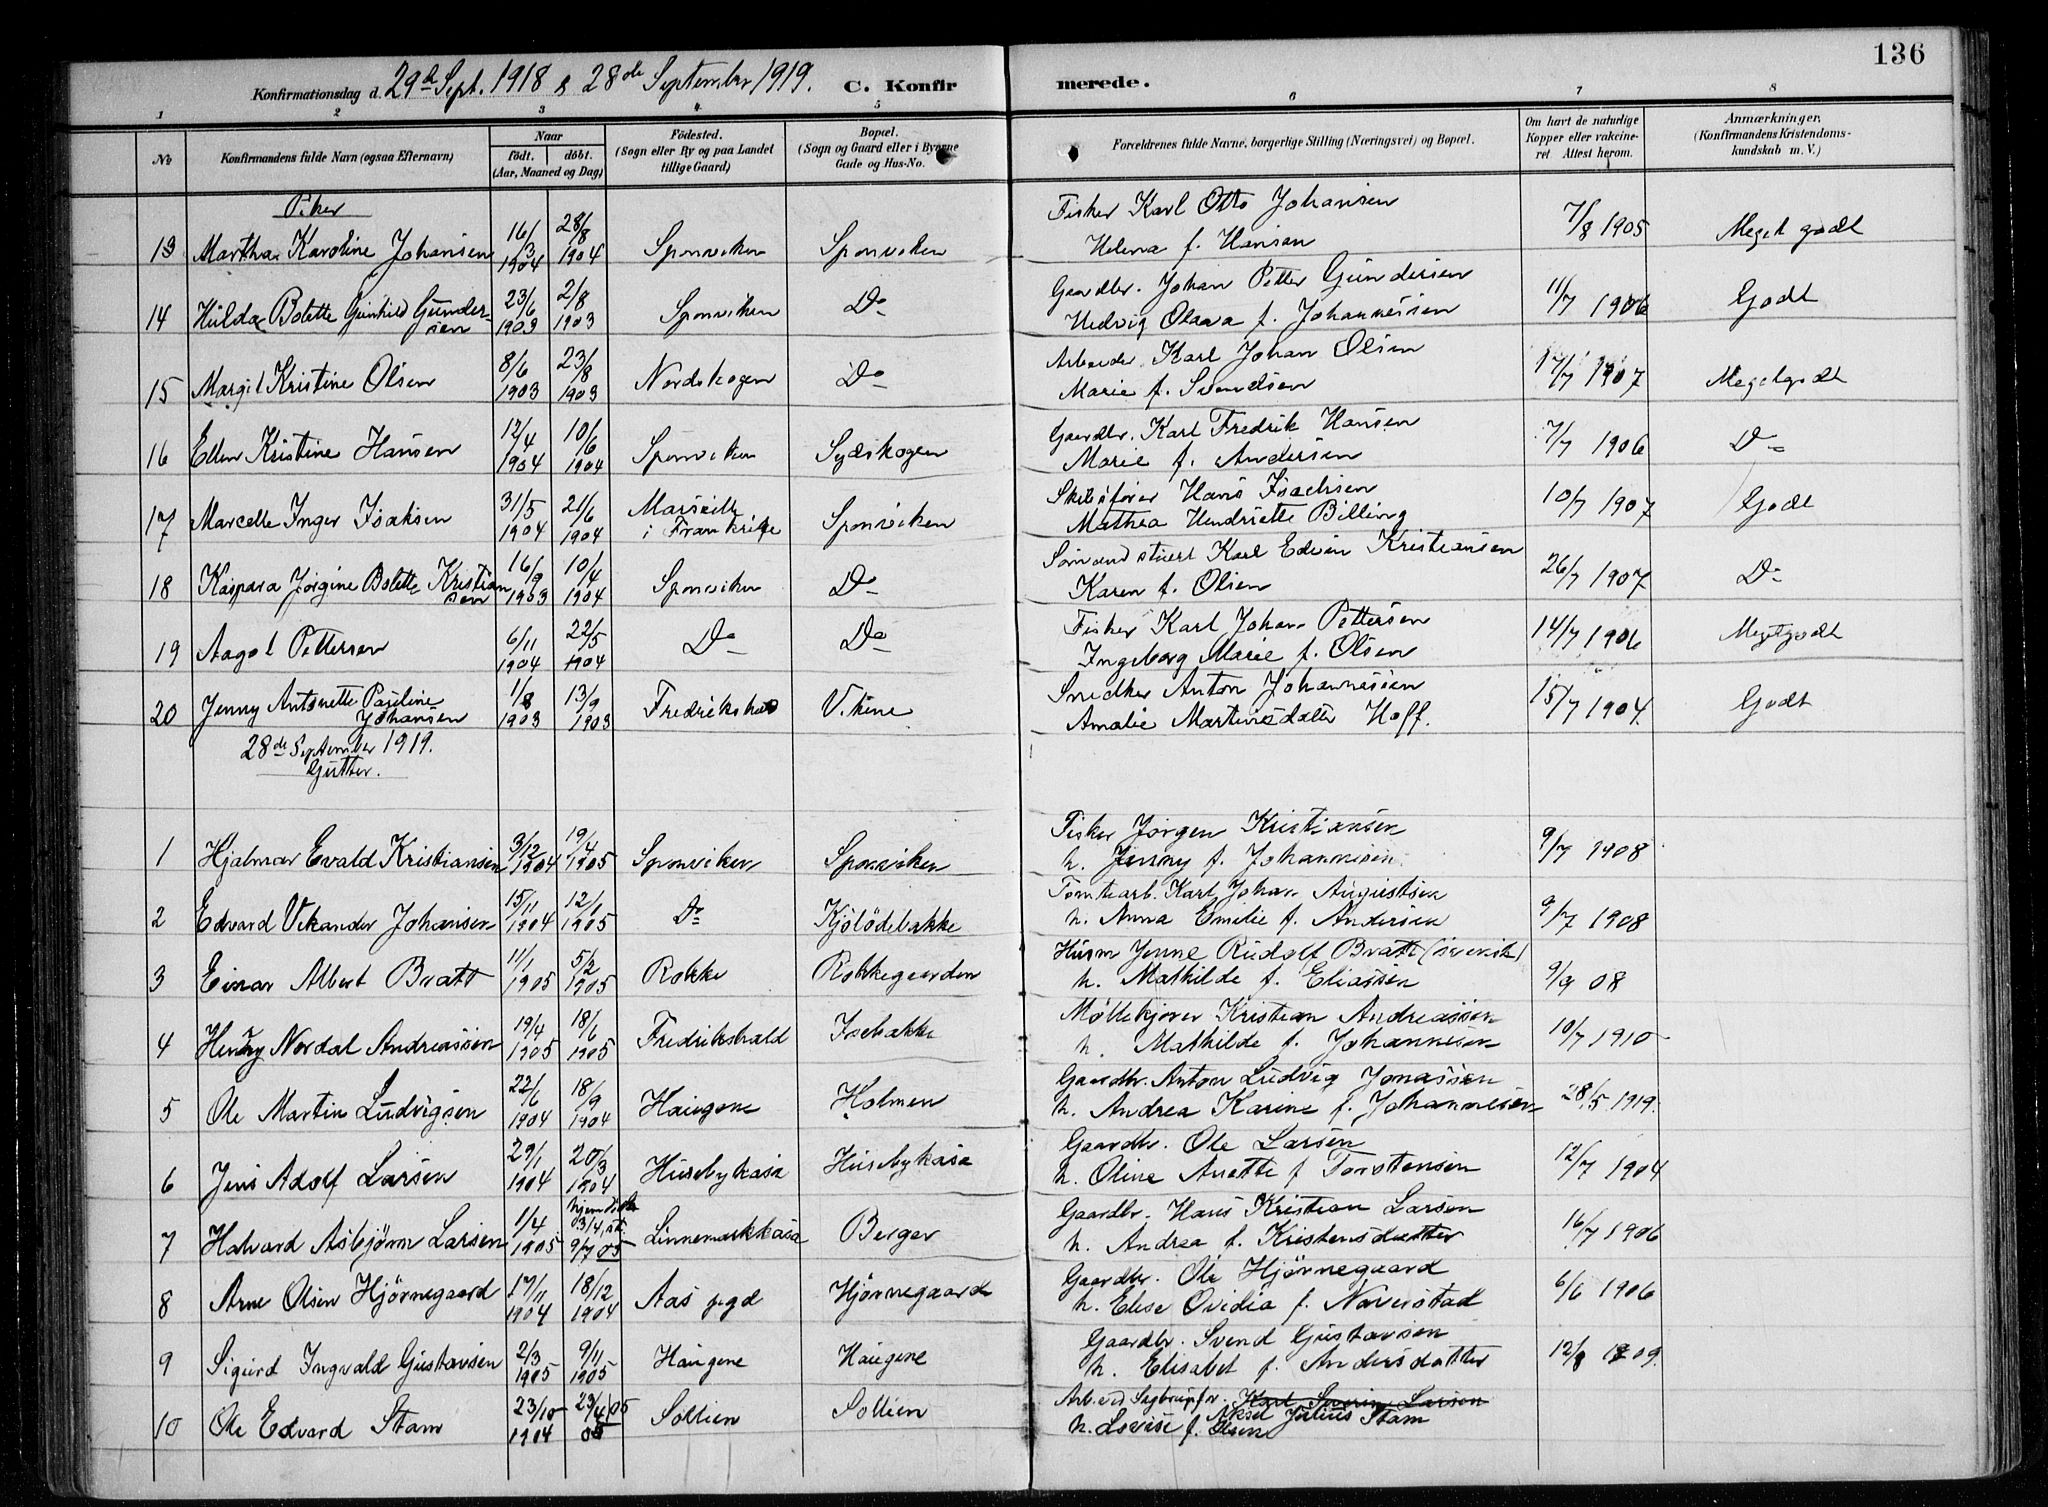 136
Konfirmationsdag d. 29de Sept. 1918 & 28de September 1919. C. Konfirmerede.
1 2 3 4 5 6 7 8
No
Konfirmandens fulde Navn (ogsaa Efternavn)
Naar
født. døbt.
(Aar, Maaned og Dag)
Fødested.
(Sogn eller By og paa Landet
tillige Gaard)
Bopæl.
(Sogn og Gaard eller i Byerne
Gade og Hus-No.
Forældrenes fulde Navne, borgerlige Stilling (Næringsvei) og Bopæl.
Om havt de naturlige
Kopper eller vakcine-
ret. Attest herom.
Anmærkninger.
(Konfirmandens Kristendoms-
kundskab m. V.)
Piker
13 Martha Karoline Johansen 16/3 1904 28/8 1904 Sponviken Sponviken Fisker Karl Otto Johansen
Helena f. Hansen 7/8 1905 Meget godt
14 Hilda Bolette Gunhild Gundersen 23/6 1903 2/8 1903 Sponviken Do Gaardbr. Johan Petter Gundersen
Hedvig Olava f. Johannessen 11/7 1906 Godt
15 Margit Kristine Olsen 8/6 1903 23/8 1903 Nordskogen Do Arbeider Karl Johan Olsen
Marie f. Svendsen 17/7 1907 Megetgodt
16 Ellen Kristine Hansen 12/4 1904 10/6 1904 Sponviken Sydskogen Gaardbr. Karl Fredrik Hansen
Marie f. Andersen 7/7 1906 Do
17 Marcelle Inger Isaksen 31/5 1904 21/6 1904 Marseille
i Frankrike Sponviken Skibsfører Hans Isachsen
Mathea Hendriette Billing 10/7 1907 Godt
18 Kaspara Jørgine Bolette Kristiansen 16/9 1903 10/4 1904 Sponviken Do Sømand stuert Karl Edvin Kristiansen
Karen f. Olsen 26/7 1907 Do
19 Aagot Pettersen 6/11 1904 22/5 1904 Do Do Fisker Karl Johan Pettersen
Ingeborg Marie f. Olsen 14/7 1906 Megetgodt
20 Jenny Antonette Pauline
Johansen 1/8 1903 13/9 1903 Fredrikshald Vikene Snedker Anton Johannessen
Amalie Martinsdatter Hoff. 15/7 1904. Godt
28de September 1919.
Gutter.
1 Hjalmar Evald Kristiansen 3/12 1904 19/4 1905 Sponviken Sponviken Fisker Jørgen Kristiansen
h. Jenny f. Johannesen 9/7 1908
2 Edvard Vikander Johansen 15/11 1904 12/1 1905 Do Kjølødebakke Tomtearb. Karl Johan Augustsen
h. Anna Emilie f. Andersen 9/7 1908
3 Einar Albert Bratt 11/1 1905 5/2 1905 Rokke Rokkegaarden Husm Jonne Rudolf Bratt (svensk)
h. Mathilde f. Eliassen 9/9 08
4 Henry Nordal Andreassen 19/4 1905 18/6 1905 Fredrikshald Isebakke Møllekjører Kristian Andreassen
h. Mathilde f. Johannesen 10/7 1910
5 Ole Martin Ludvigsen 22/6 1904 18/9 1904 Haugene Holmen Gaardbr. Anton Ludvig Jonassen
h. Andrea Karine f. Johannesen 28/5 1919.
6 Jens Adolf Larsen 29/1 1904 20/3 1904 Husebykasa Husebykasa Gaardbr. Ole Larsen
h. Oline Anette f Torstensen 12/7 1904
7 Halvard Asbjørn Larsen 1/4 1905 hjemdøbt 3/4, st. 9/7 05 Linnemarkkasa Berger Gaardbr. Hans Kristian Larsen
h. Andrea f. Kristensdatter 16/7 1906
8 Arne Olsen Hjørnegaard 17/11 1904 18/12 1904 Aas pgd Hjørnegaard Gaardbr. Ole Hjørnegaard
h. Elise Ovidia f. Naverstad 6/6 1906
9 Sigurd Ingvald Gustavsen 2/3 1905 9/11 1905 Haugene Haugene Gaardbr. Svend Gustavsen
h. Elisabet f. Andersdatter 12/8 1909.
10 Ole Edvard Stam 23/10 1904 23/4 05 Sollien Sollien Karl Severin Larsen
Aksel Julius Stam
h. Lovise f. Olsen